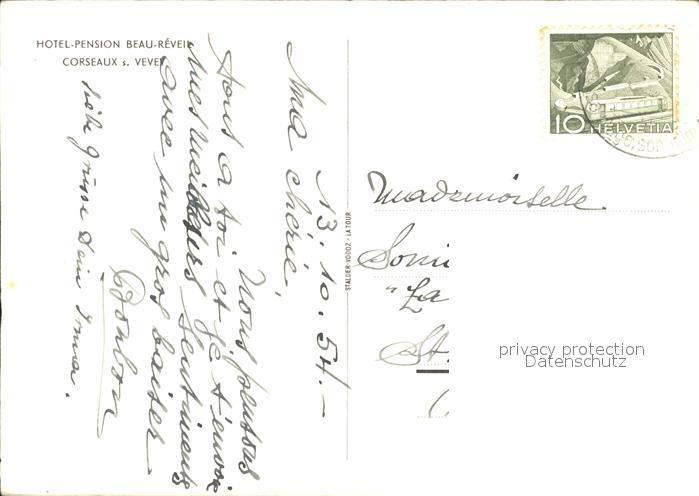 HOTEL-PENSION BEAU-RÉVEIL
CORSEAUX s. VEVEY
13. 10. 54.-
Ma chérie,
Nous pensons
tous à toi et je t'envoie
mes meilleurs sentiments
avec un gros baiser
Bonbon
liebe Grüsse Dein Irma.
STALDER-VODOZ - LA TOUR
10 HELVETIA
Mademoiselle
"La
St.
privacy protection
Datenschutz